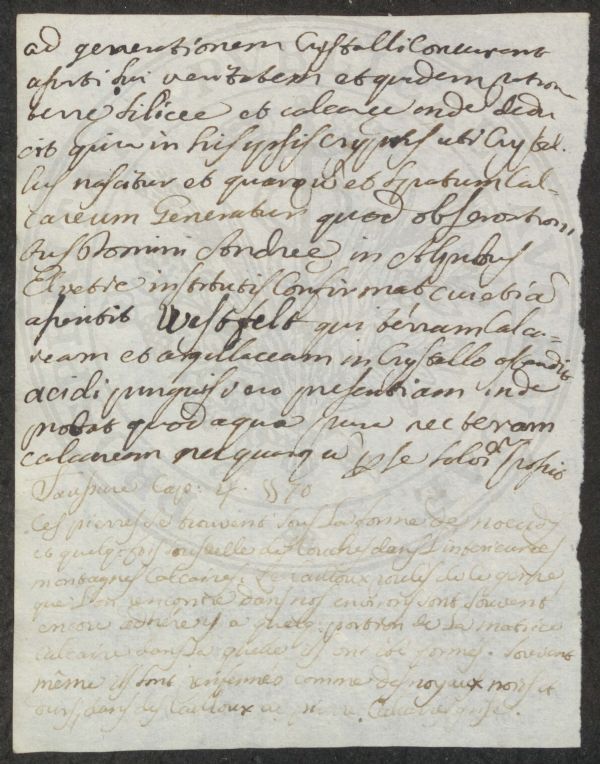 ad generationem Crystalli Concurrant
asserti sui veritatem et quidem ration
terre silicee et calcaree inde dedu
cit quia in his ipsis cryptis ubi Crystal.
lus nascitur et quarzū et spatum Cal-
careum Generatur quod observation,
bus Domini Andree in Alpibus
Elvetie institutis Confirmat cui etiā
assentit Westfelt qui terram Calca-
ream et argillaceam in Crystallo ostendit
acidi pinguis vero presentiam inde
probat quod aqua pura nec terram
calcaream nec quarzū per se solvi possit
Saussure Cap: 4. §§ 70
Ces pierres se trouvent sous la forme de noeuds
et quelqefois sous celle de Couches dans l'interieur des
montagnes Calcaires. Les Cailloux roulés de ce genre
que l'on rencontre dans nos environs sont souvent
encore adherens a quelq: portion de la matrice
calcaire dans la quelle ils ont eté formés. Souvent
même ils sont renfermés comme des noyaux noirs et
durs, dans des Cailloux de pierre Calcaire grise.